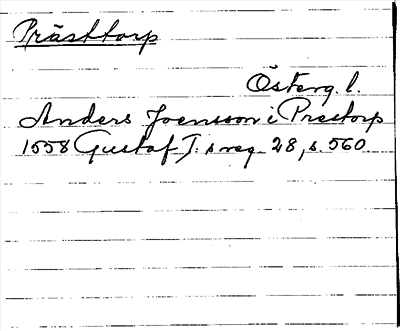 Prästtorp
Österg. l.
Anders Joensson i Prestorp
1558 Gustaf I:s reg. 28, s. 560